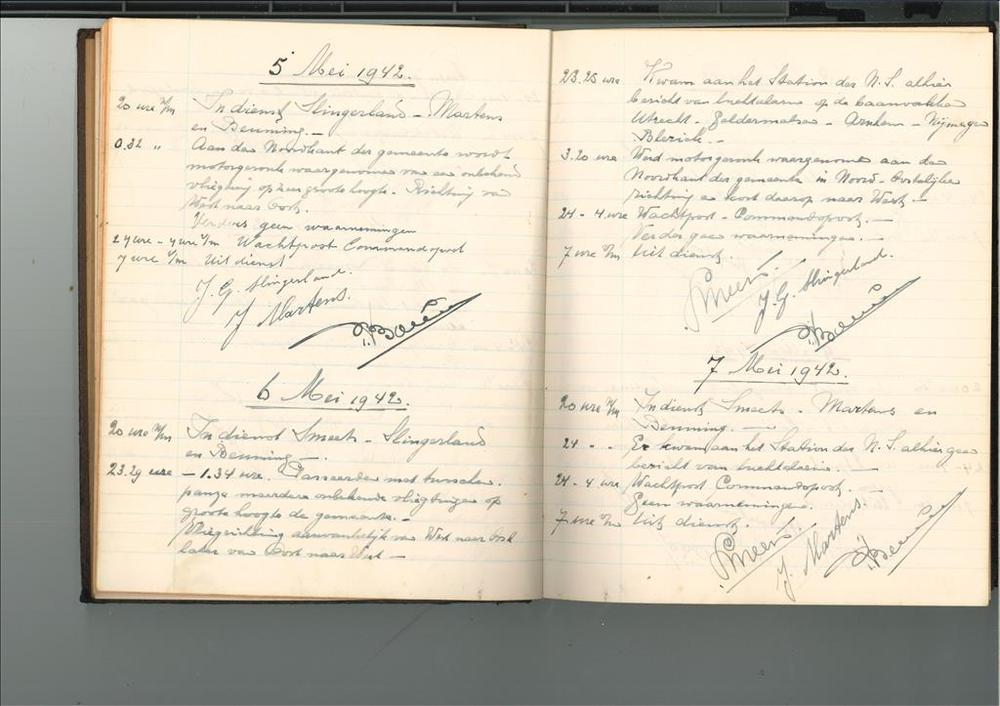 5 Mei 1942.
20 ure n/m In dienst Slingerland - Martens
en Benning. -
0.32 " Aan den Noordkant der gemeente wordt
motorgeronk waargenomen van een onbekend
vliegtuig op zeer groote hoogte. Richting van
West naar Oost.
Verders geen waarnemingen
24 ure - 4 ure v/m Wachtpost Commandopost
7 ure v/m Uit dienst
J. G. Slingerland.
J Martens.
6 Mei 1942.
20 ure n/m In dienst Smeets - Slingerland
en Benning -
23.29 ure - 1.34 ure. Passeerden met tusschen-
poozen meerdere onbekende vliegtuigen op
groote hoogte de gemeente. -
Vliegrichting aanvankelijk van West naar Oost
later van Oost naar West -
23.25 ure Kwam aan het Station der N.S. alhier
bericht van luchtalarm op de baanvakken
Utrecht - Geldermalsen - Arnhem - Nijmegen
Blerick. -
3.20 ure Werd motorgeronk waargenomen aan den
Noordkant der gemeente in Noord-Oostelijke
richting en kort daarop naar West -
24 - 4 ure Wachtpost - Commandopost. -
Verder geen waarnemingen. -
7 ure v/m Uit dienst.
Smeets
J. G. Slingerland.
7 Mei 1942.
20 ure n/m In dienst Smeets - Martens en
Benning. -
24 - . Er kwam aan het Station der N.S. alhier geen
bericht van luchtalarm. -
24 - 4 ure Wachtpost Commandopost. -
Geen waarnemingen.
7 ure v/m Uit dienst.
Smeets
J. Martens.